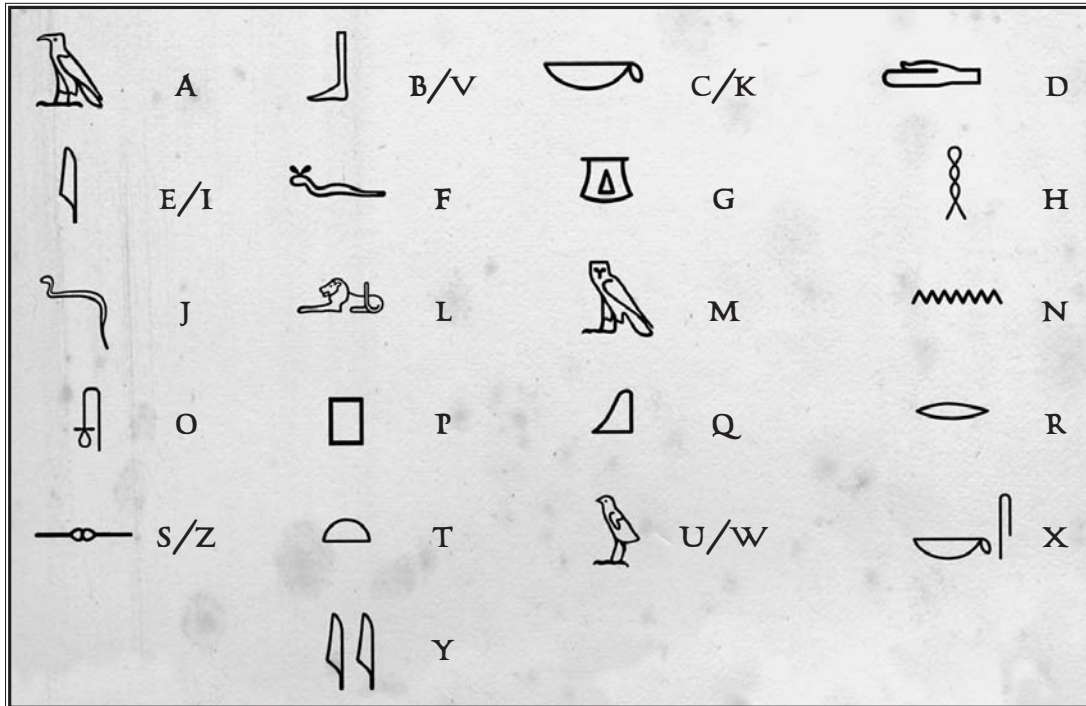 A B/V C/K D
E/I F G H
J L M N
O P Q R
S/Z T U/W X
Y